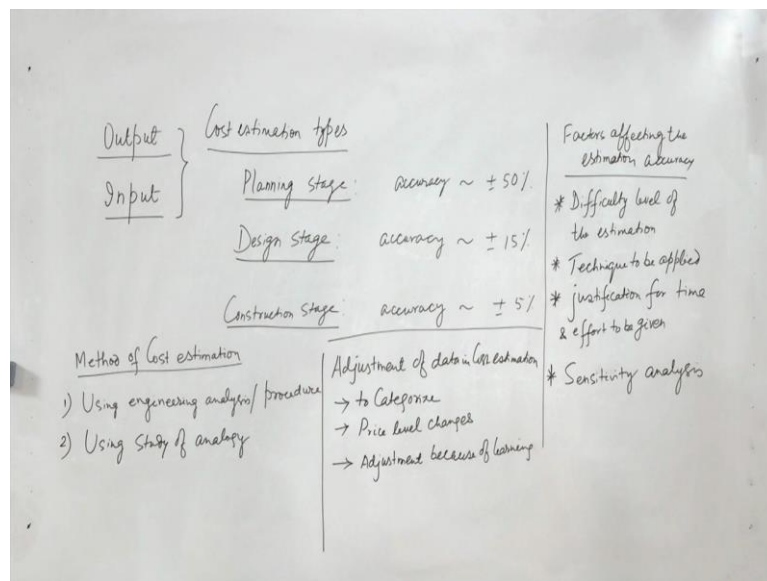 Output
Input
Cost estimation types
Planning stage: accuracy ~ ± 50%
Design stage: accuracy ~ ± 15%
Construction stage: accuracy ~ ± 5%
Method of Cost estimation
1) Using engineering analysis/procedure
2) Using study of analogy
Adjustment of data in Cost estimation
→ to Categorize
→ Price level changes
→ Adjustment because of learning
Factors affecting the
estimation accuracy
* Difficulty level of
the estimation
* Technique to be applied
* justification for time
& effort to be given
* Sensitivity analysis